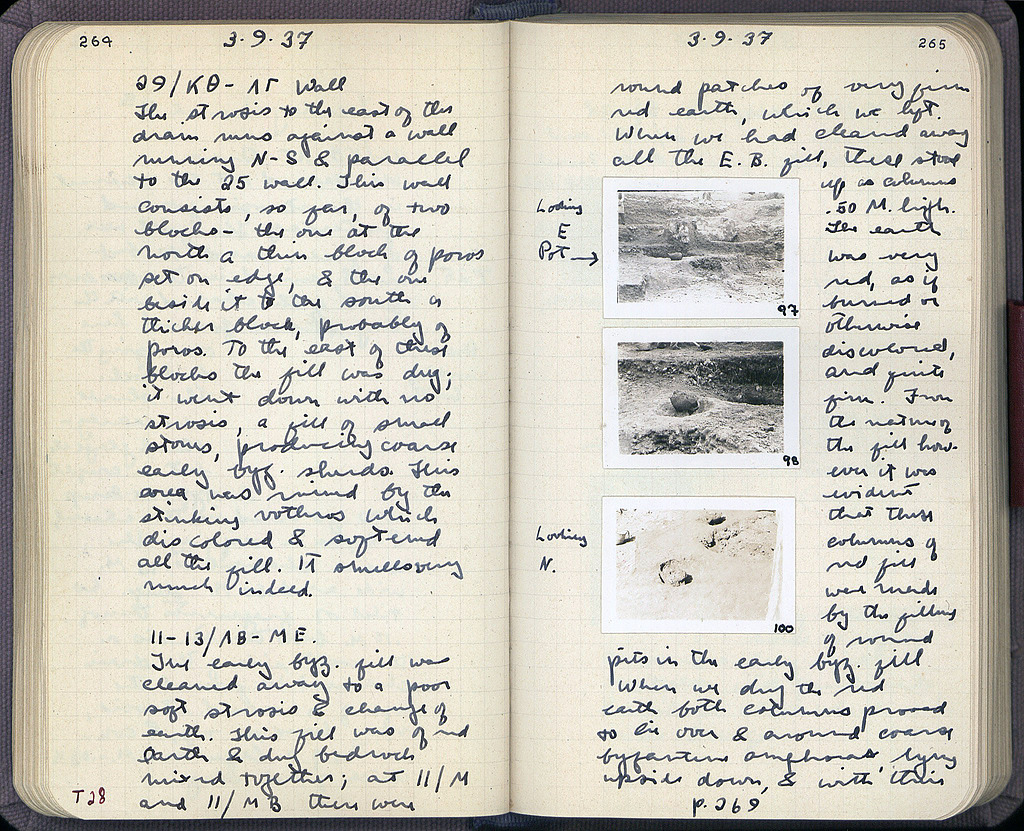 264
3·9·37
29/ΚΘ - ΛΓ Wall
The strosis to the east of the
drain runs against a wall
running N-S & parallel
to the 25 wall. This wall
consists, so far, of two
blocks - the one at the
north a thin block of poros
set on edge, & the one
beside it to the south a
thicker block, probably of
poros. To the east of these
blocks the fill was dug;
it went down with no
strosis, a fill of small
stones, producing coarse
early byz. sherds. This
area was ruined by the
stinking vothros which
discolored & softened
all the fill. It smells very
much indeed.
11-13/ΛΒ-ΜΕ.
The early byz. fill was
cleared away to a poor
soft strosis & change of
earth. This fill was of red
earth & dug bedrock
mixed together; at 11/Μ
and 11/ΜΒ there were
T28
3·9·37
265
round patches of very firm
red earth, which we left.
When we had cleared away
all the E.B. fill, these stood
up as columns
.50 M. high.
The earth
was very
red, as if
burned or
otherwise
discolored,
and quite
firm. From
the nature of
the fill how-
ever it was
evident
that these
columns of
red fill
were made
by the filling
of round
pits in the early byz. fill
When we dug the red
earth both columns proved
to lie over & around coarse
byzantine amphorae lying
upside down, & with their
p. 269
Looking
E
Pot →
97
98
Looking
N.
100